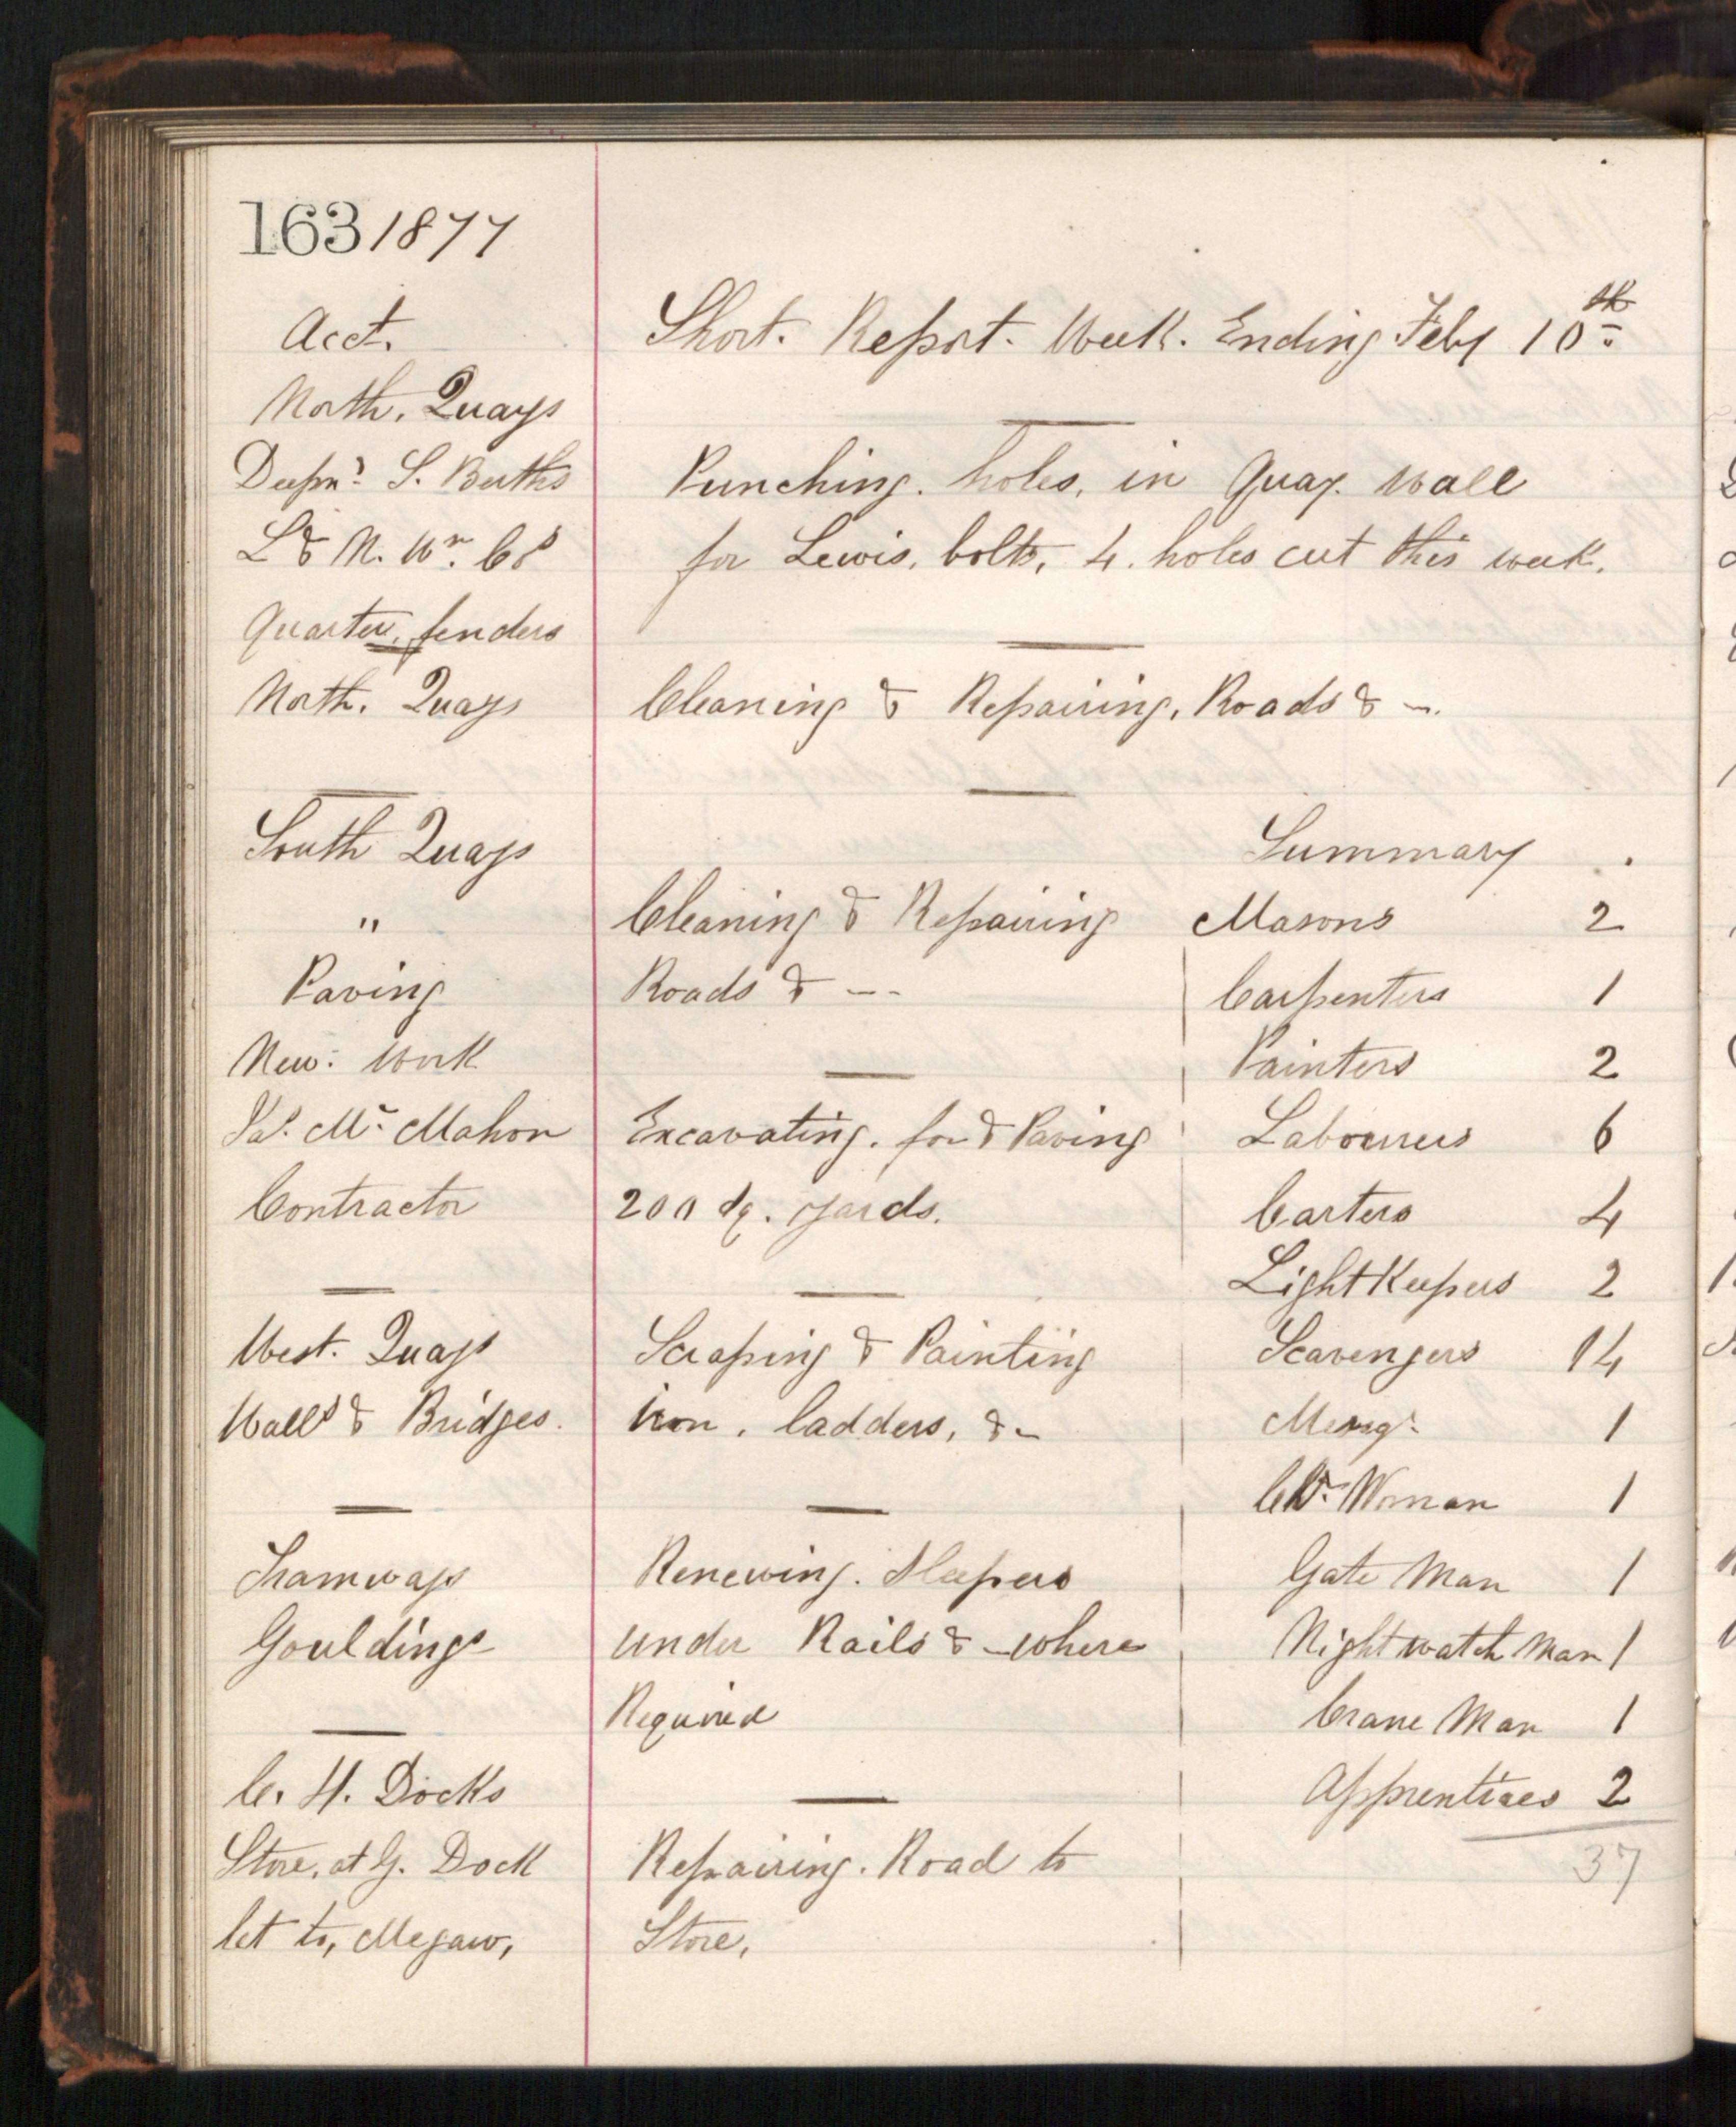 163 1877
Acct.
Short. Report. Week. Ending Feby 10th
North. Quays
Deepng. S. Berths
Punching. holes, in Quay. Wall
L & N. Wn. Co
for Lewis, bolts, 4. holes cut this week.
Quarter, fenders
North. Quays
Cleaning & Repairing, Roads & -.
South Quays
Summary
" Cleaning & Repairing
Masons 2
Paving
Roads & --
Carpenters 1
New: Work
Painters 2
Mc Mahon
Excavating. for & Paving
Labourers 6
Contractor
200 Sq. yards.
Carters 4
Light Keepers 2
West. Quays
Scraping & Painting
Scavengers 14
Walls & Bridges.
iron, ladders, &-
Messgr. 1
Woman 1
Tramways
Renewing. Sleepers
Gate Man 1
Gouldings
under Rails & - where
Night watch man 1
Required
Crane Man 1
C. H. Docks
Apprentices 2
Store, at G. Dock
Repairing. Road to
37
let to, Megaw,
Store,